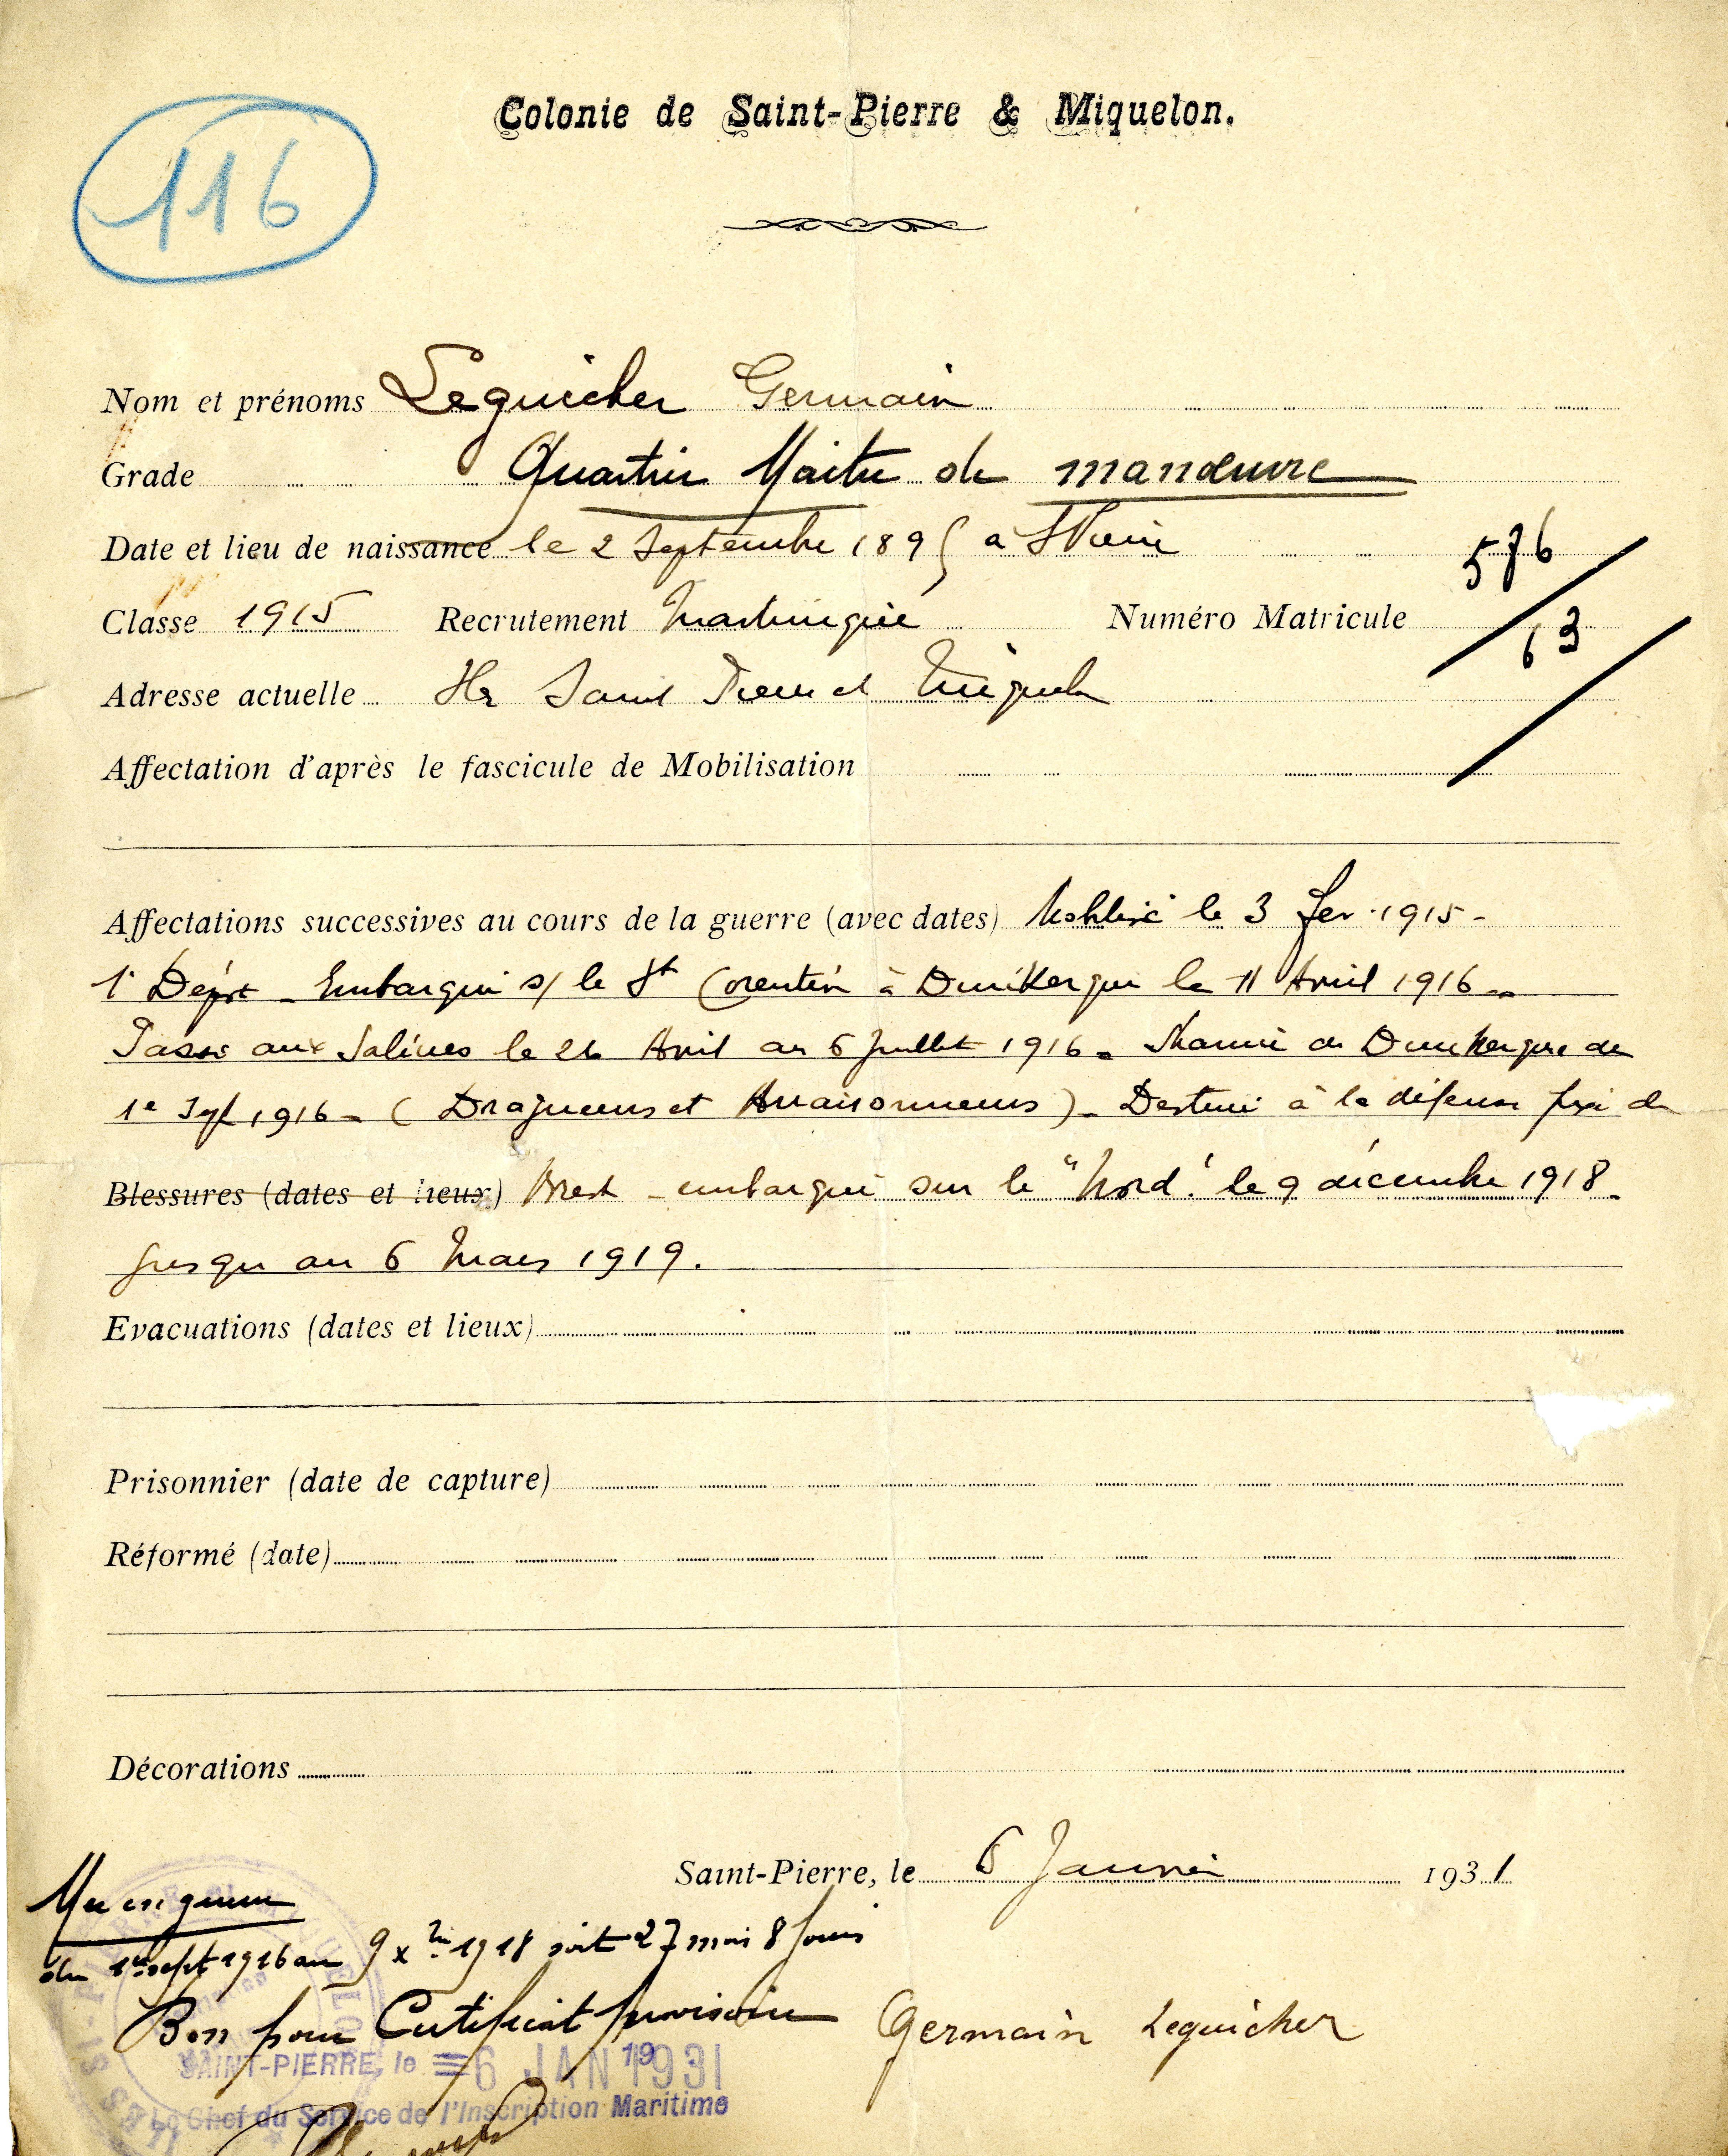 116
Colonie de Saint-Pierre & Miquelon.
Nom et prénoms Leguicher Germain
Grade Quartier Maitre de manœuvre
Date et lieu de naissance le 2 Septembre 1895 à St Pierre
576
Classe 1915 Recrutement Martinique Numéro Matricule
63
Adresse actuelle Ile Saint Pierre et Miquelon
Affectation d'après le fascicule de Mobilisation
Affectations successives au cours de la guerre (avec dates) Mobilisé le 3 fev. 1915 -
1er Dépôt - Embarqué s/ le St Corentin à Dunkerque le 11 Avril 1916 -
Passe aux Salines le 26 Avril au 6 Juillet 1916 - Marine de Dunkerque du
1e Sept 1916 - ( Dragueurs et Arraisonneurs ) - Destiné à la défense fixe de
Blessures (dates et lieux) Brest - embarqué sur le "Nord" le 9 décembre 1918 -
jusqu au 6 Mars 1919.
Evacuations (dates et lieux)
Prisonnier (date de capture)
Réformé (date)
Décorations
Saint-Pierre, le 6 Janvier 1931
du 1er sept 1916 au 9 xbre 1918 soit 27 mois 8 jours
Bon pour Certificat provisoire
Germain Leguicher
SAINT-PIERRE, le 6 JAN 1931
19
Le Chef du Service de l'Inscription Maritime